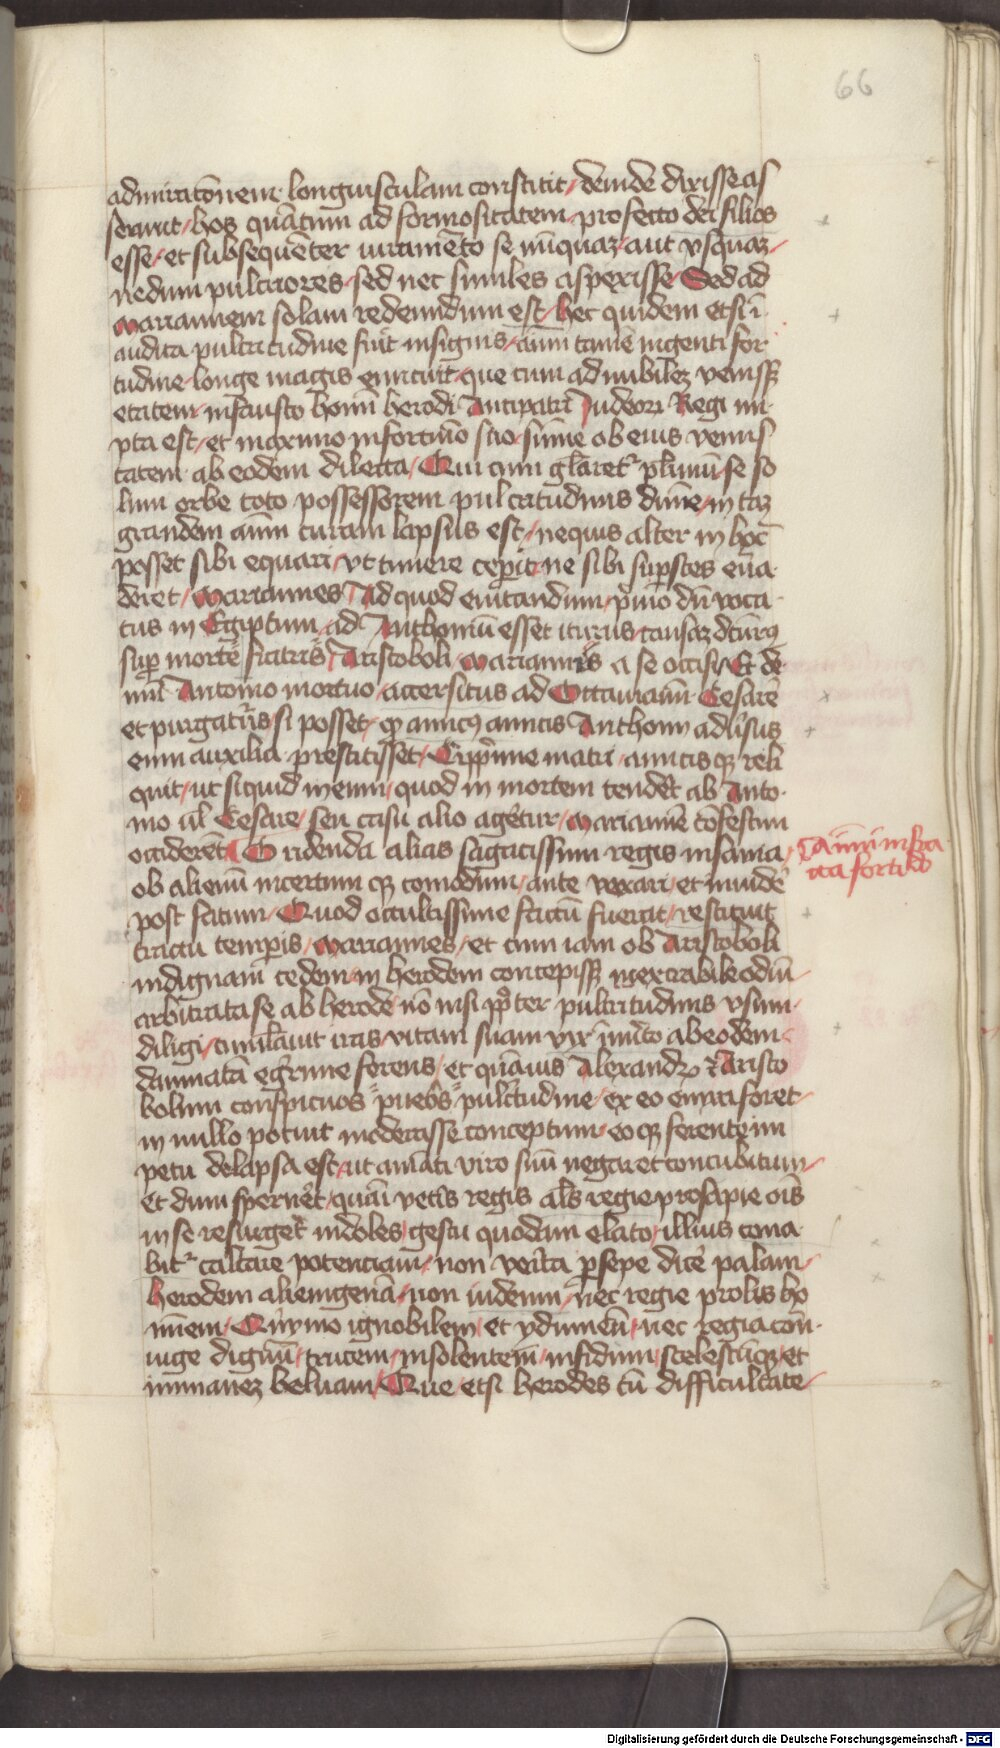 66
admiratōnem longiusculam constitit / deinde dixisse as
seruit / hos quātum ad formositatem profecto dei filios
esse / et subsequēter iuramēto se nūquaꝫ aut vsquaꝫ
nedum pulcriores sed nec similes aspexisse Sed ad
Mariannem solam redeundum est / hec quidem etsi ī
audita pulcritudine fuit insignis / aīm tamē ingenti for
tudine longe magis emicuit que cum ad nubileꝫ venissꝫ
etatem infausto homī herodi Antipatri Judeorꝫ Regi nu
pta est / et maximo infortuīo suo sūme ob eius venus
tatem ab eodem dilecta / Qui cum glāretᷣ plīmū se so
lum orbe toto possessorem pulcritudinis diuīe in taꝫ
grandem aīm curam lapsus est / nequis alter in hoc
posset sibi equari / vt timere ceperit ne sibi suꝑstes eūa
deret / Mariannes Ad quod euitandum pīmo dū voca
tus in Egiptum ad Anthoniū esset iturus causaꝫ dcūrꝰ
suꝑ mortē fratris Aristoboli Mariannis a se occisi Et de
mū Antonio mortuo accersitus ad Octauianū Cesarē
et purgatūs si posset qꝫ amicꝰ amicis Anthonij adūsus
eum auxilia prestitisset Cippīne matri amicisqꝫ reli
quit / ut siquid in eum quod in mortem tenderet ab Anto
nio ul Cesare / seu casu alio agētur Mariannē cōfestim
occiderēt O ridenda alias sagacissimi regis insania
ob alienū incertumqꝫ comodum ante vexari et inuidē
post fatum Quod occultissime factū fuerit restituit
tractu temꝑis Mariannes et cum iam ob Aristoboli
indignam cedem in herodem concepissꝫ inexorabile odiū
arbitrata se ab herode nō nisi ꝓpter pulcritudinis vsum
diligi cumlauit iras vitam suam vix īmīto ab eodem
damnatā egrīme ferens et quāuis Alexandrꝫ et Aristo
bolum conspicuos pueros pulcritudine ex eo enixa foret
in nullo potuit moderasse conceptum eo qꝫ ferente im
petu delapsa est ut amāti viro suū negaret concubitum
et dum sperneret quāi vetīs regis als regie prosapie oīs
in se resurgeret indoles gestu quodam elato illius cona
bitᷣ calcare potenciam non verita persepe dicē palam
herodem alienigenā non iudeum nec regie prolis ho
minem Quīymo ignobilem et ydumeū nec regia con
iuge dignū trucem insolentem infidum scelestūqꝫ et
immaneꝫ beluam Que etsi herodes cū difficultate
Digitalisierung gefördert durch die Deutsche Forschungsgemeinschaft - DFG